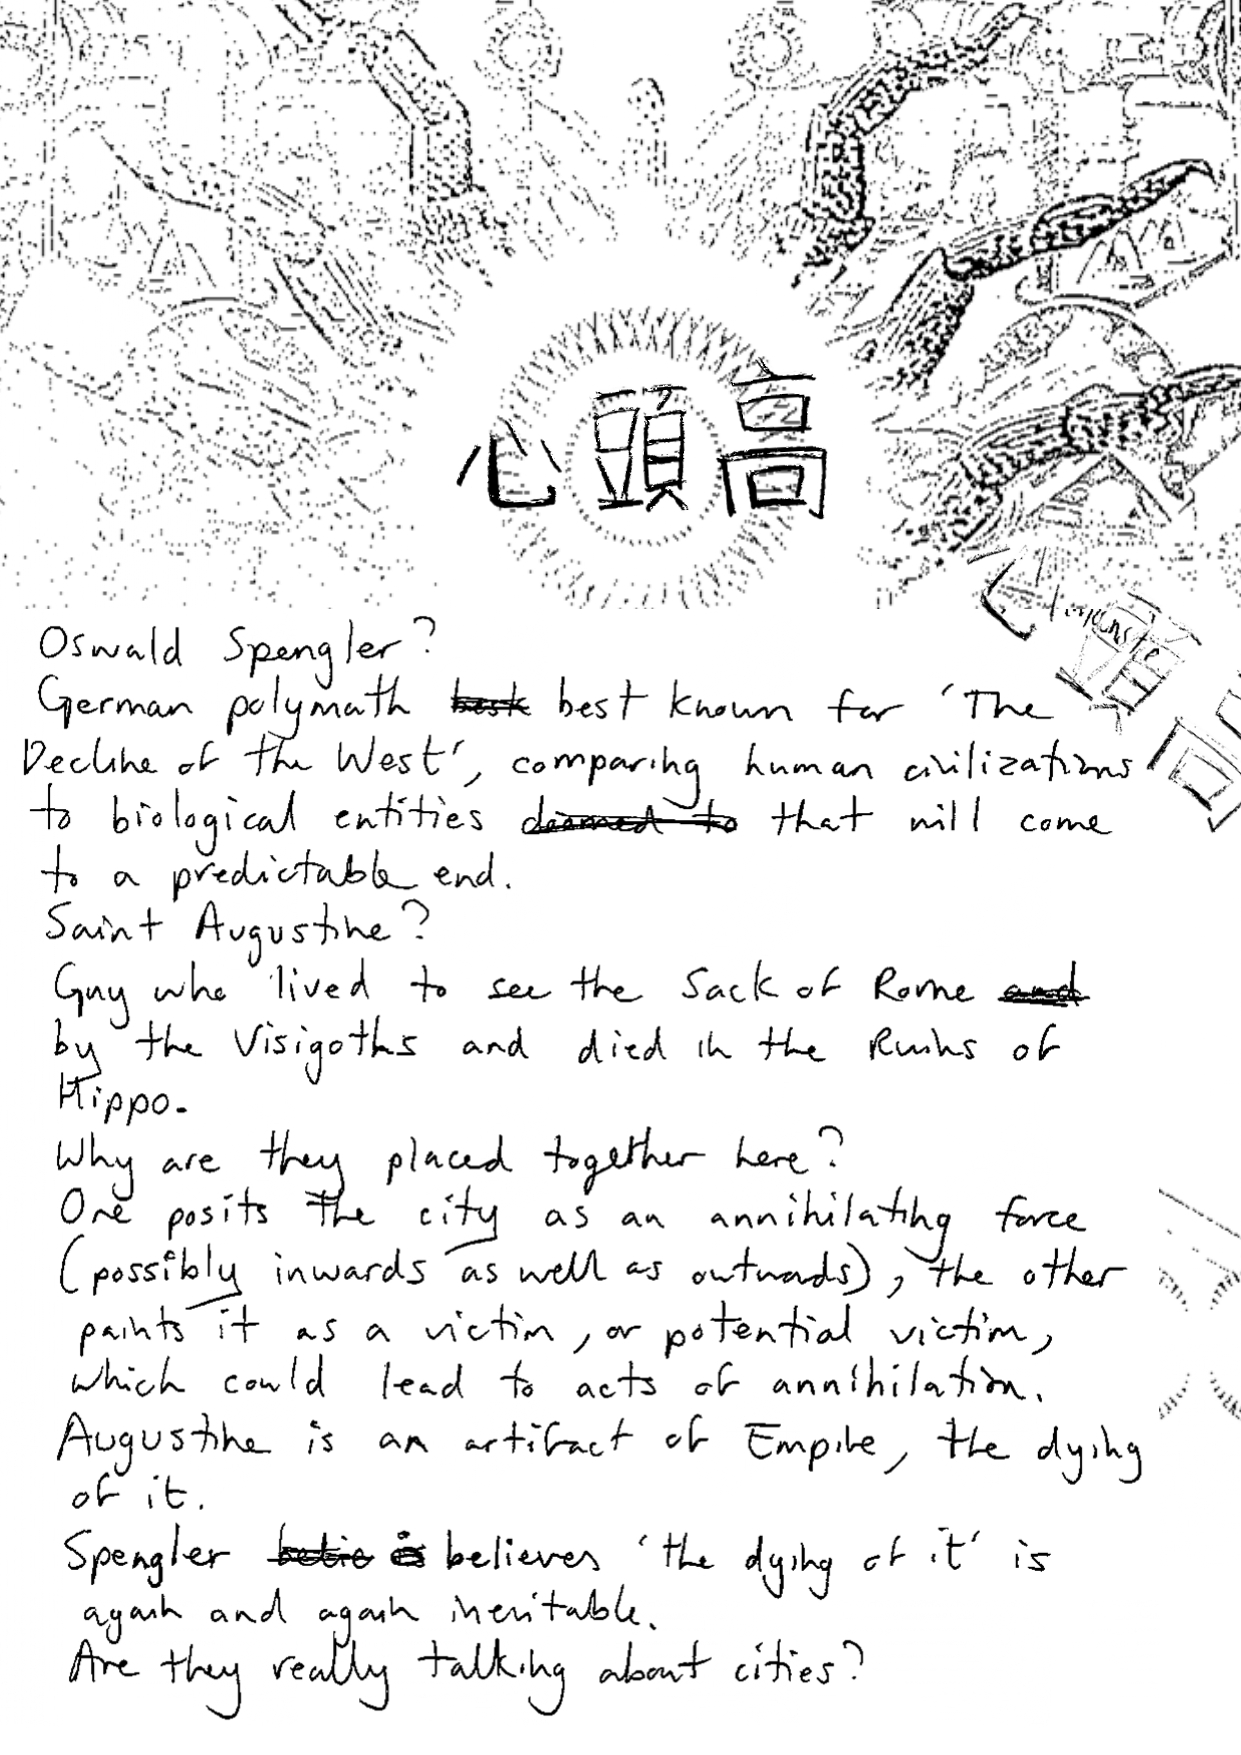 心頭高
Oswald Spengler?
German polymath best known for 'The
Decline of the West', comparing human civilizations
to biological entities doomed to that will come
to a predictable end.
Saint Augustine?
Guy who lived to see the Sack of Rome and
by the Visigoths and died in the Ruins of
Hippo.
Why are they placed together here?
One posits the city as an annihilating force
(possibly inwards as well as outwards), the other
paints it as a victim, or potential victim,
which could lead to acts of annihilation.
Augustine is an artifact of Empire, the dying
of it.
Spengler believes 'the dying of it' is
again and again inevitable.
Are they really talking about cities?